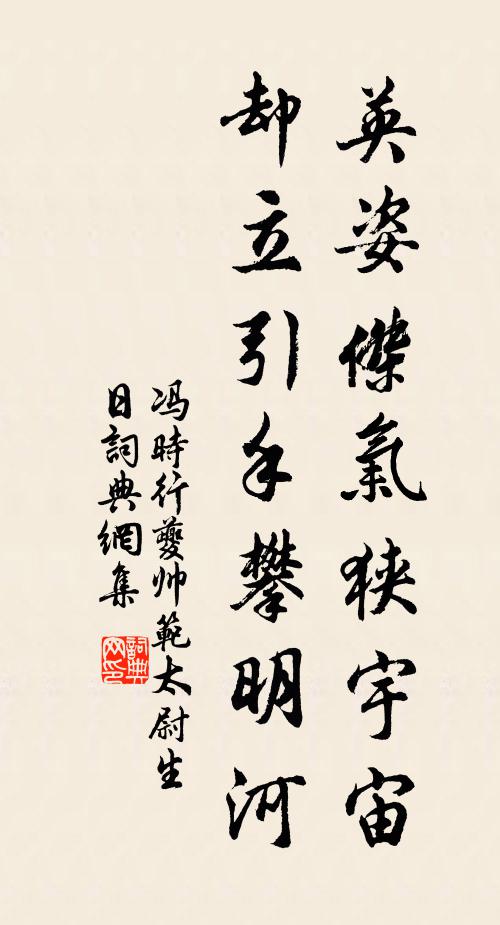 英姿傑氣狹宇宙
却立引手攀明河
冯時行夔帅範太尉生
日詞典網集
詞典網印